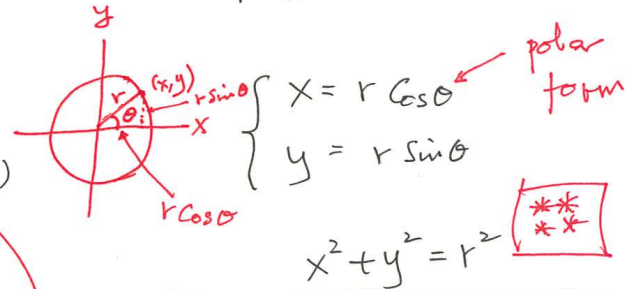 y
(x,y)
r
θ
r sinθ
x
r cosθ
)
{ x = r Cosθ
y = r Sinθ
polar
form
x² + y² = r²
**
**